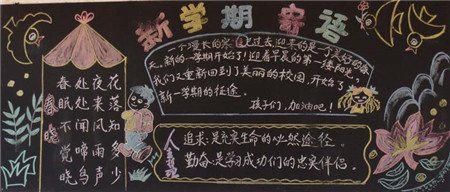 新学期寄语
春晓
春眠不觉晓
处处闻啼鸟
夜来风雨声
花落知多少
一个漫长的寒已过去,迎来的是一个美好的春
天,新的一学期开始了!迎着早晨的第一缕阳光,
我们又重新回到了美丽的校园,开始了
新一学期的征途。
孩子们,加油吧!
人生
追求:是充实生命的必然途径。
勤奋:是学习成功们的忠实伴侣。